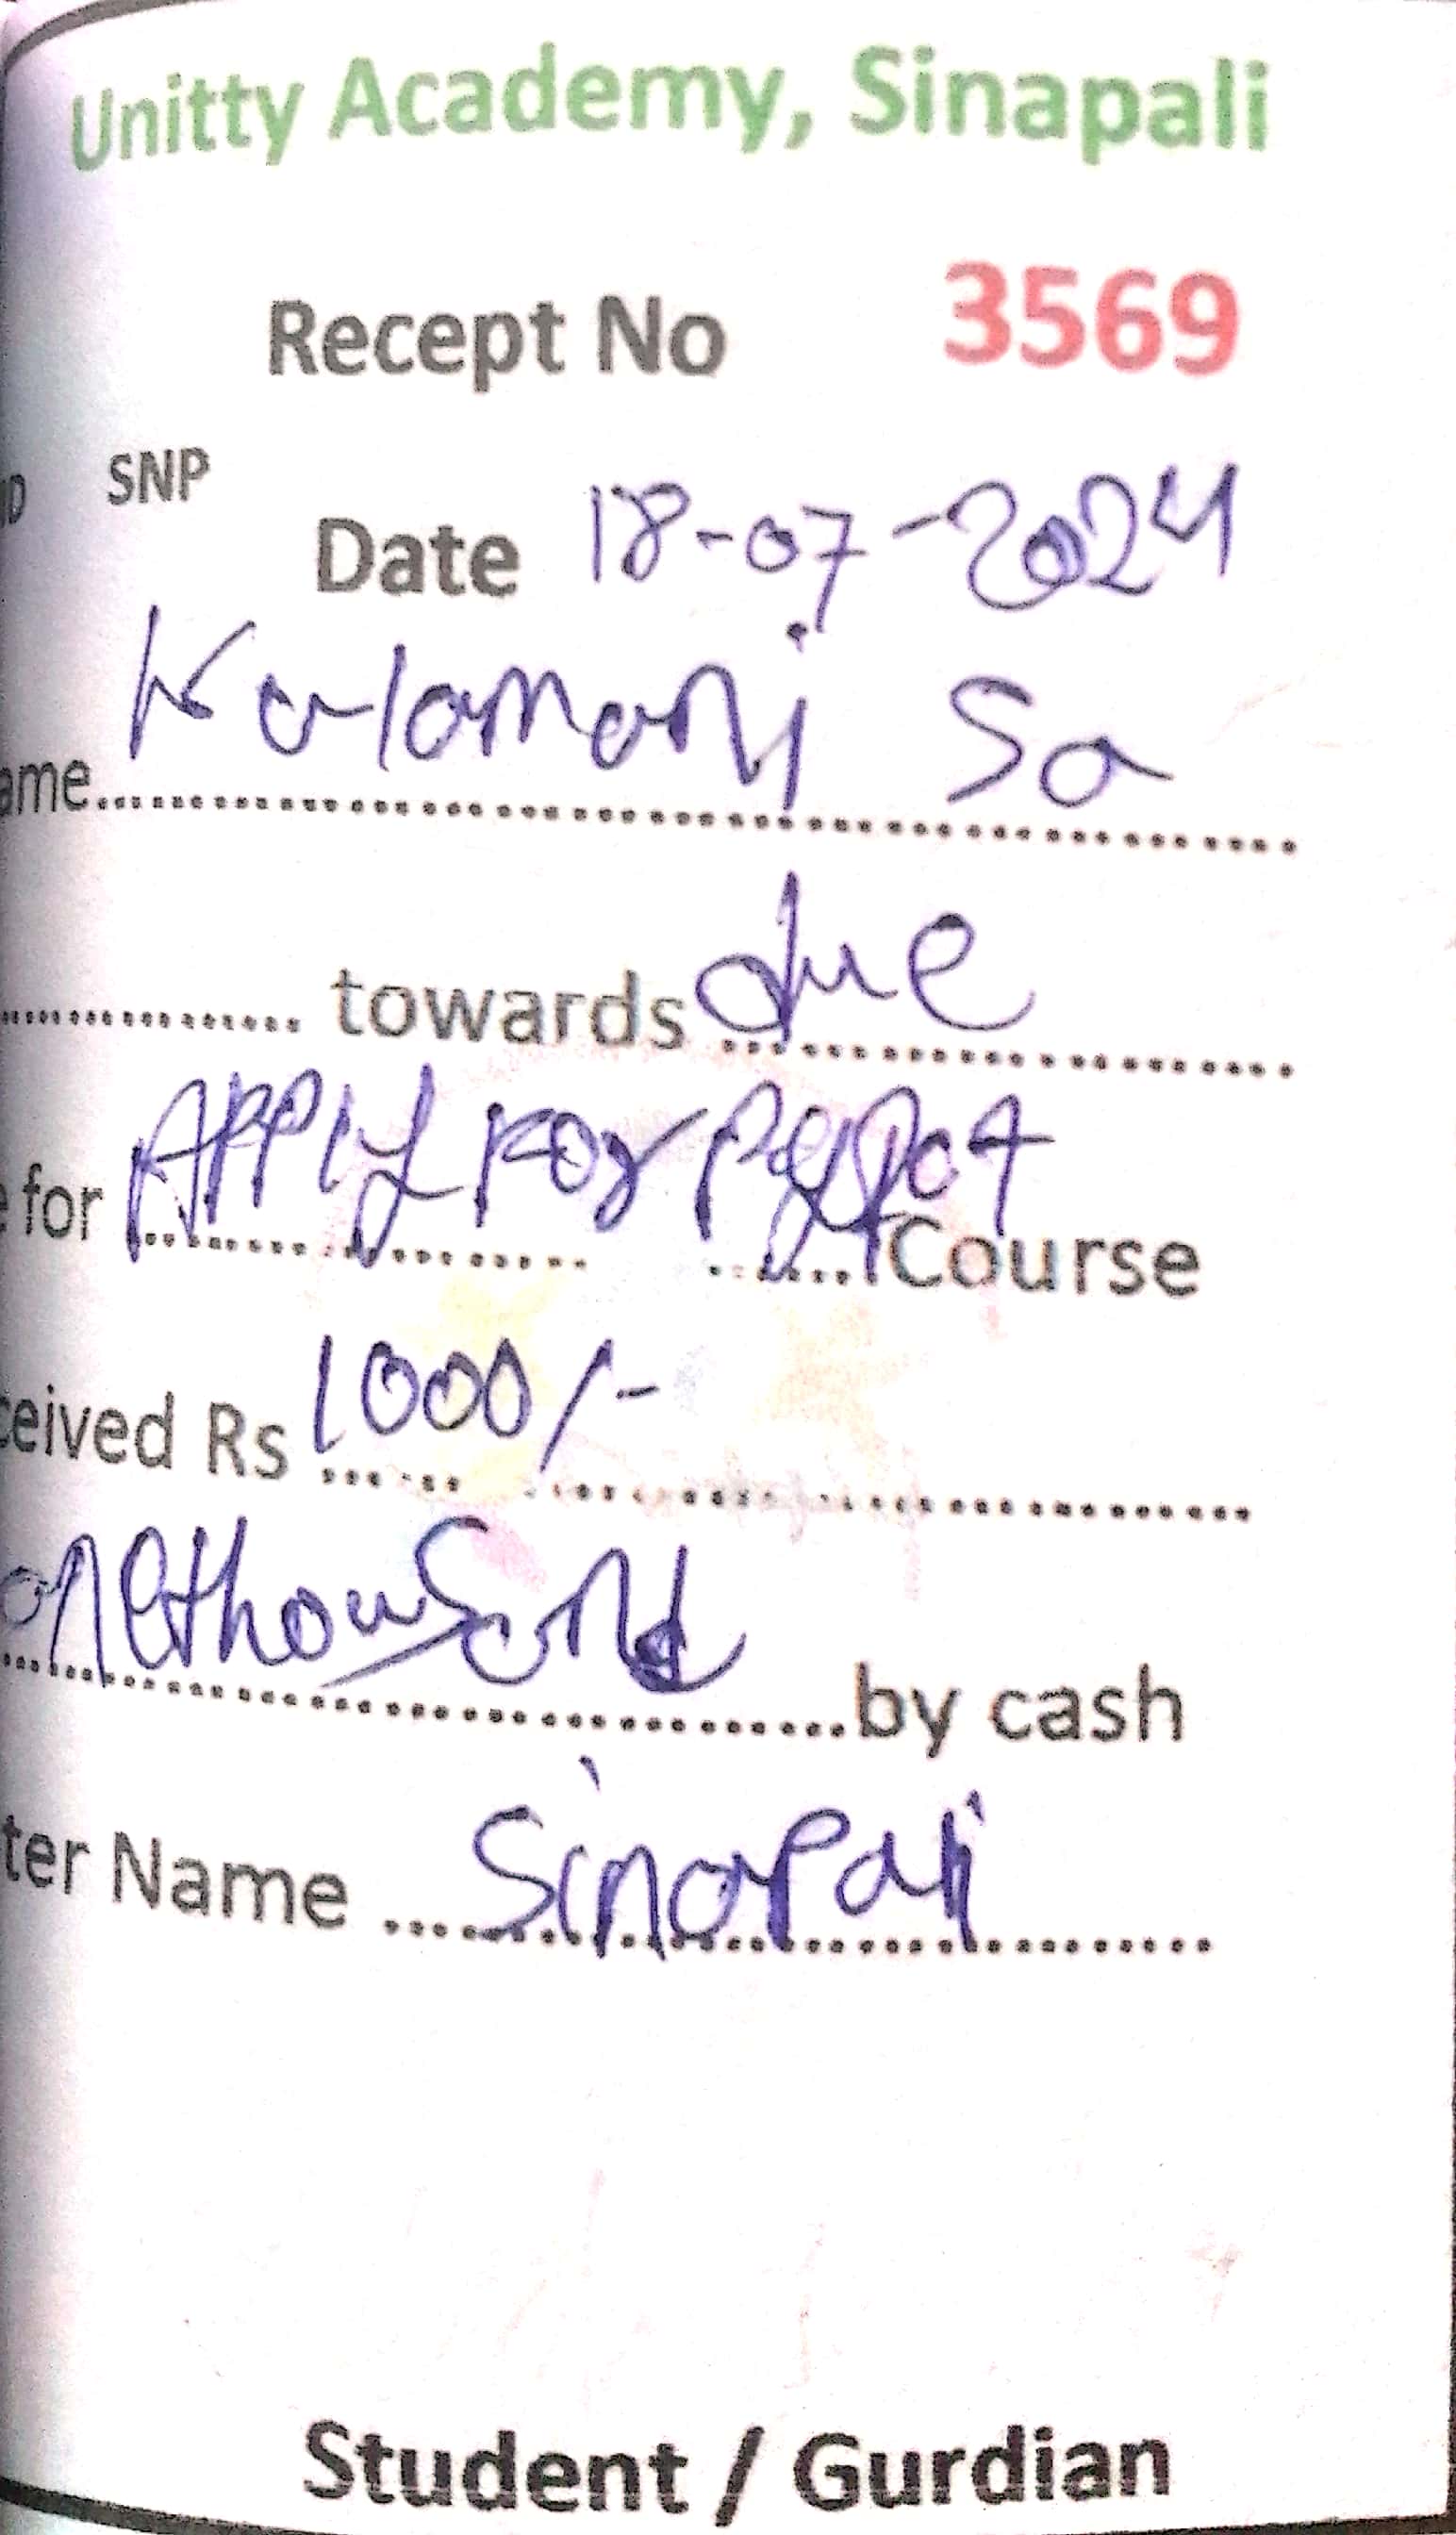 Unitty Academy, Sinapali
Recept No 3569
SNP
Date 18-07-2024
ame Kalamani Sa
towards due
for APPly For Course
ceived Rs 1000/-
onethousand by cash
ter Name Sinapali
Student / Gurdian